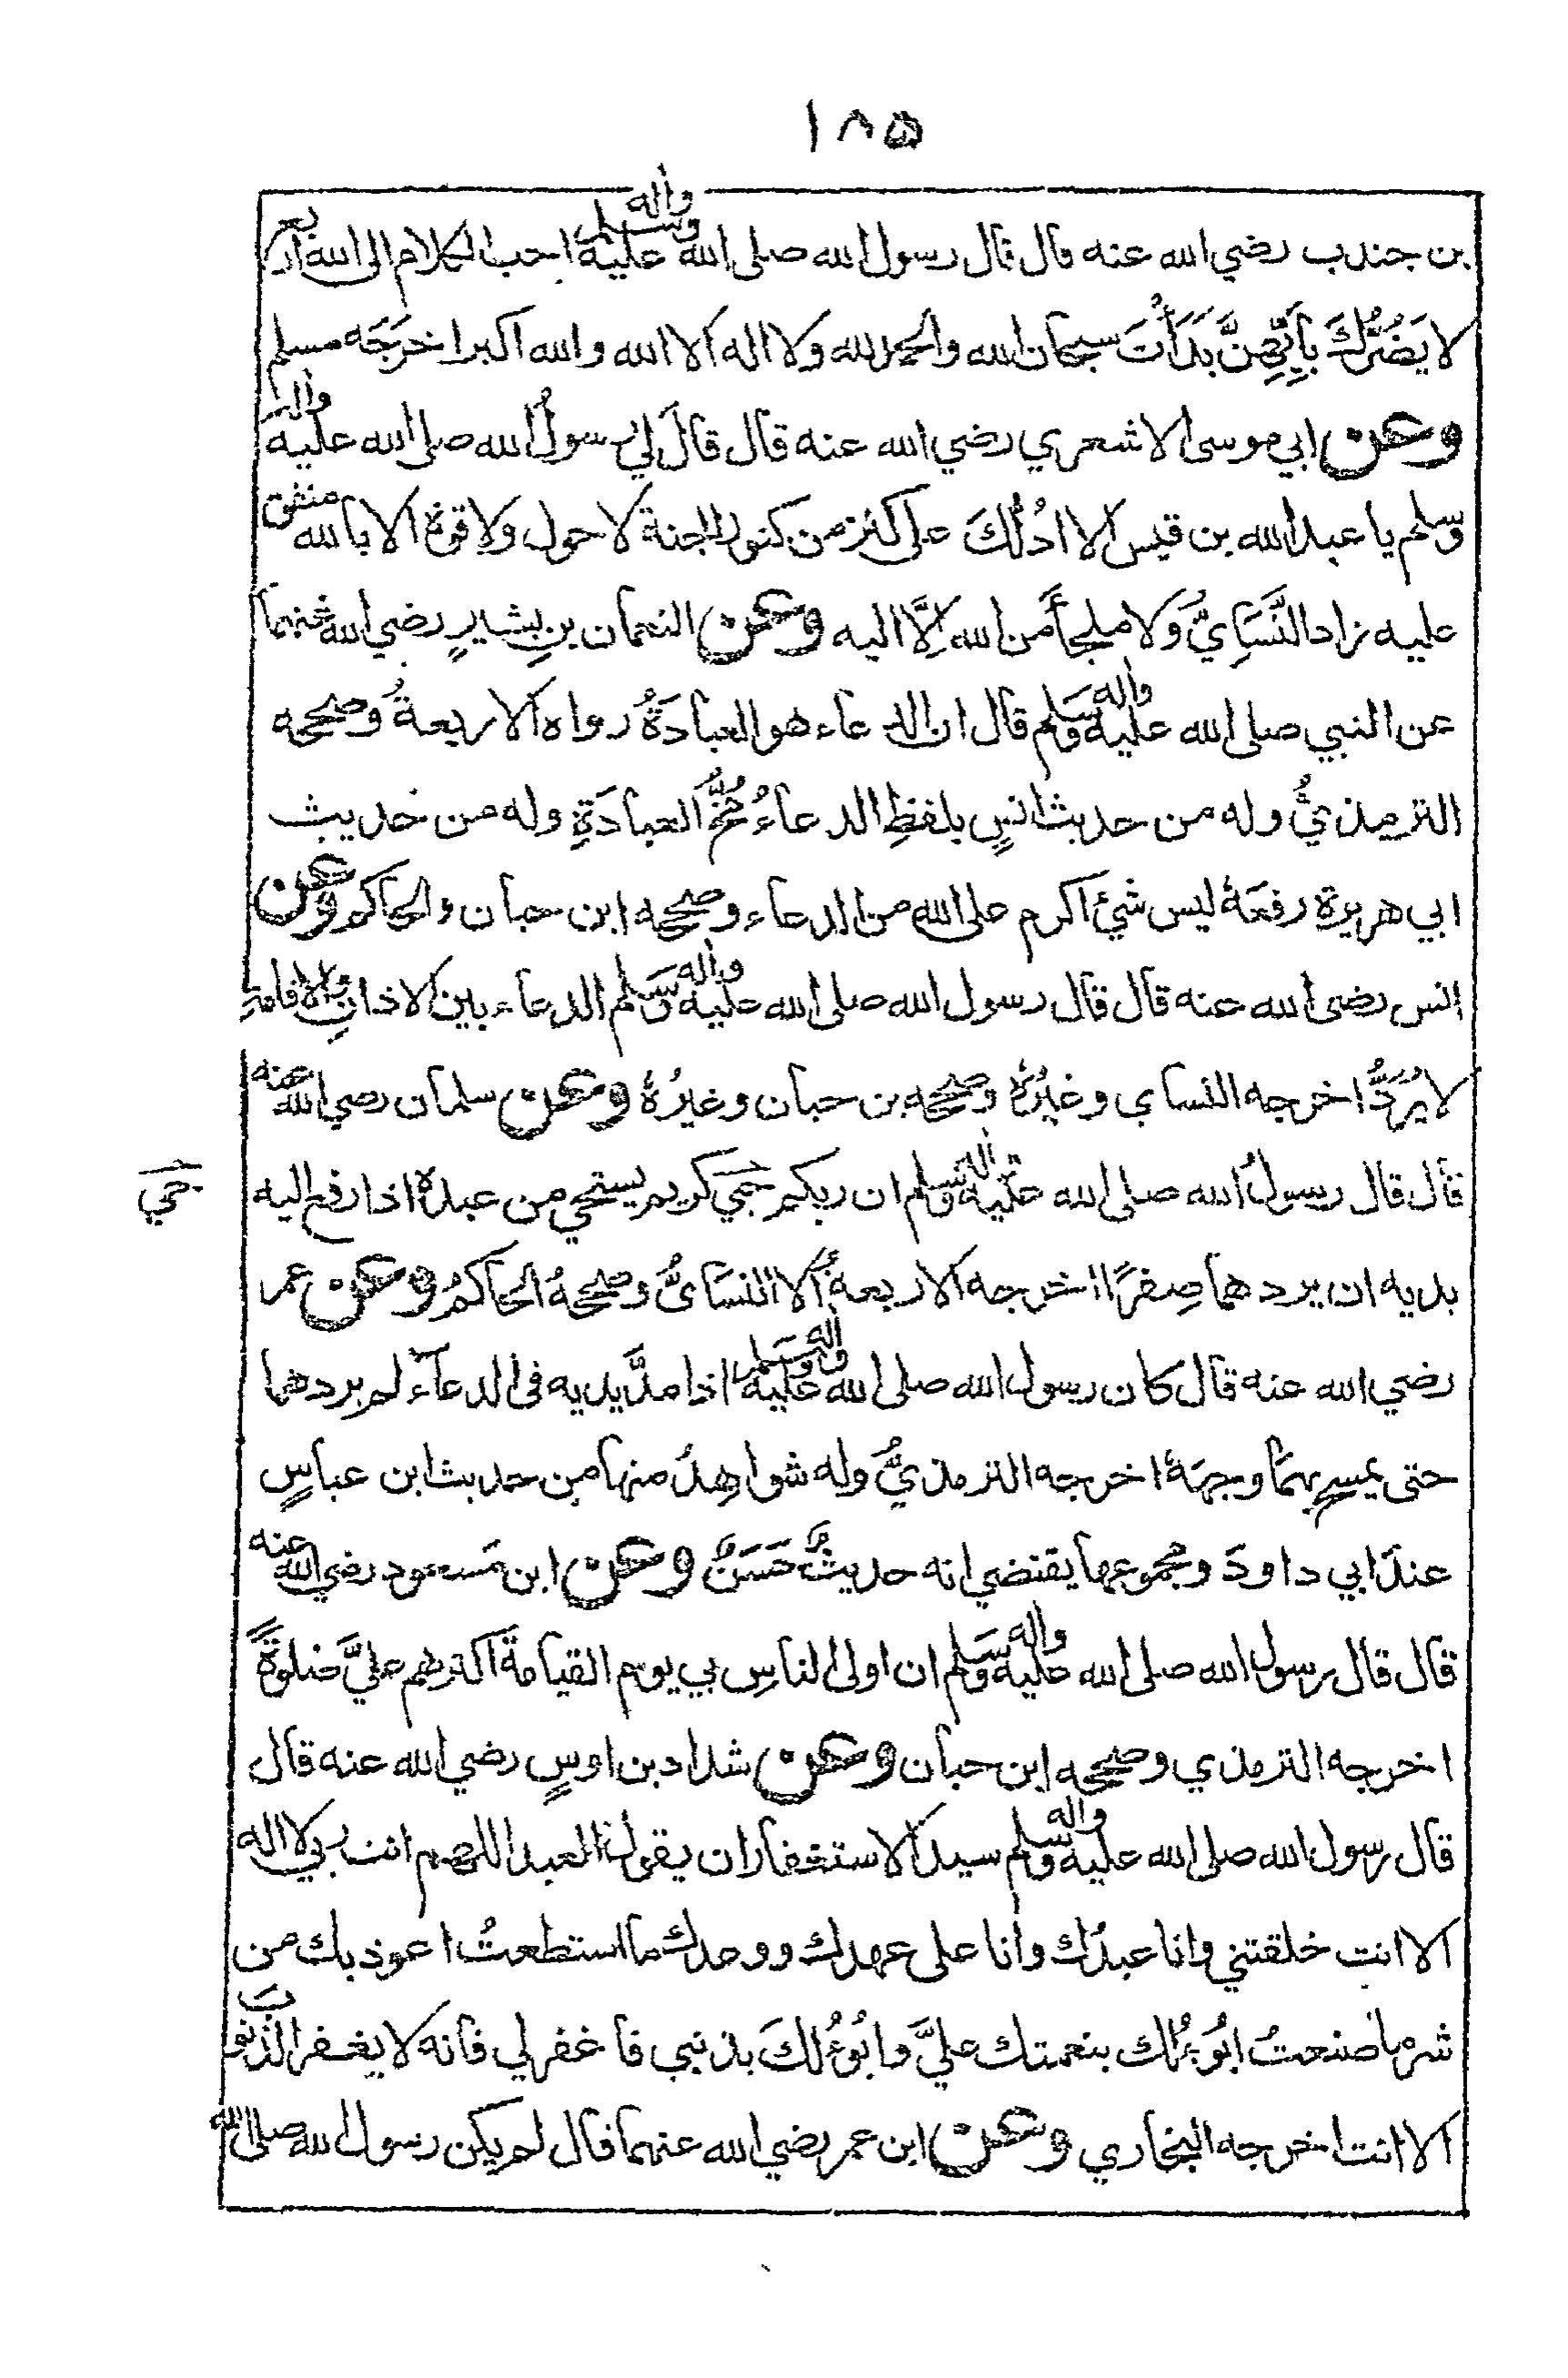 ١٨۵
بن جندب رضي الله عنه قال قال رسول الله صلى الله عليه واله وسلم احب الكلام الى الله اربع
لا يَضُرُّكَ بِاَيِّهِنَّ بَدَأتَ سبحان الله والحمد لله ولا اله الا الله والله اكبر اخرَجَه مسلم
وعن ابي موسى الاشعري رضي الله عنه قال قالَ لي رسولُ الله صلى الله عليه واله
وسلم يا عبد الله بن قيس الا ادُلُّكَ على كنز من كنوز الجنة لا حول ولا قوة الا بالله متفق
عليه زاد النَّسَايِيُّ وَلا ملجأَ من الله اِلَّا اليه وعن النعمان بنِ بشيرٍ رضي الله عنهما
عن النبي صلى الله عليه واله وسلم قال ان الدعاء هو العبادَةُ رواه الاربعةُ وصححه
الترمذيُّ وله من حديث انسٍ بلفظِ الدعاءُ مُخُّ العبادَةِ وله من حديث
ابي هريرة رفعَهُ ليس شيئ اكرم على الله من الدعاء وصححه ابن حبان والحاكم وعن
انس رضى الله عنه قال قال رسول الله صلى الله عليه واله وسلم الدعاء بين الاذانِ والاقامةِ
لا يُرَدُّ اخرجه النساي وغيرُهُ وصححه بن حبان وغيرُهُ وعن سلمان رضي الله عنه
قال قال رسولُ الله صلى الله عليه واله وسلم ان ربكم حَيِيٌّ كريم يستحيي من عبده اذا رفع اليه
حَيي
يديه ان يردهما صِفرًا اخرجه الاربعةُ الا النسَائيُّ وصححهُ الحاكمُ وعن عمر
رضي الله عنه قال كان رسول الله صلى الله عليه واله وسلم اذا مدَّ يديه في الدعآء لم يردهما
حتى يمسح بهما وجهَهُ اخرجه الترمذيُّ وله شواهِدُ منها مِن حديث ابن عباسٍ
عندَ ابي داودَ ومجموعها يقتضي انه حديثٌ حَسَنٌ وعن ابن مَسعود رضي الله عنه
قال قال رسول الله صلى الله عليه واله وسلم ان اولى الناسِ بي يوم القيامة اكثرهم عليَّ صلوةً
اخرجه الترمذي وصححه ابن حبان وعن شداد بن اوسٍ رضي الله عنه قال
قال رسول الله صلى الله عليه واله وسلم سيد الاستغفار ان يقول العبد اللهم انت ربي لا اله
الا انت خلقتني وانا عبدُك وانا على عهدك ووعدك ما استطعتُ اعوذ بك من
شر ما صنعتُ ابُوءُ لك بنعمتك عليَّ وابُوءُ لكَ بذنبي فاغفر لي فانه لا يغفر الذنوبَ
الا انت اخرجه البخاري وعن ابن عمر رضي الله عنهما قال لم يكن رسول الله صلى الله